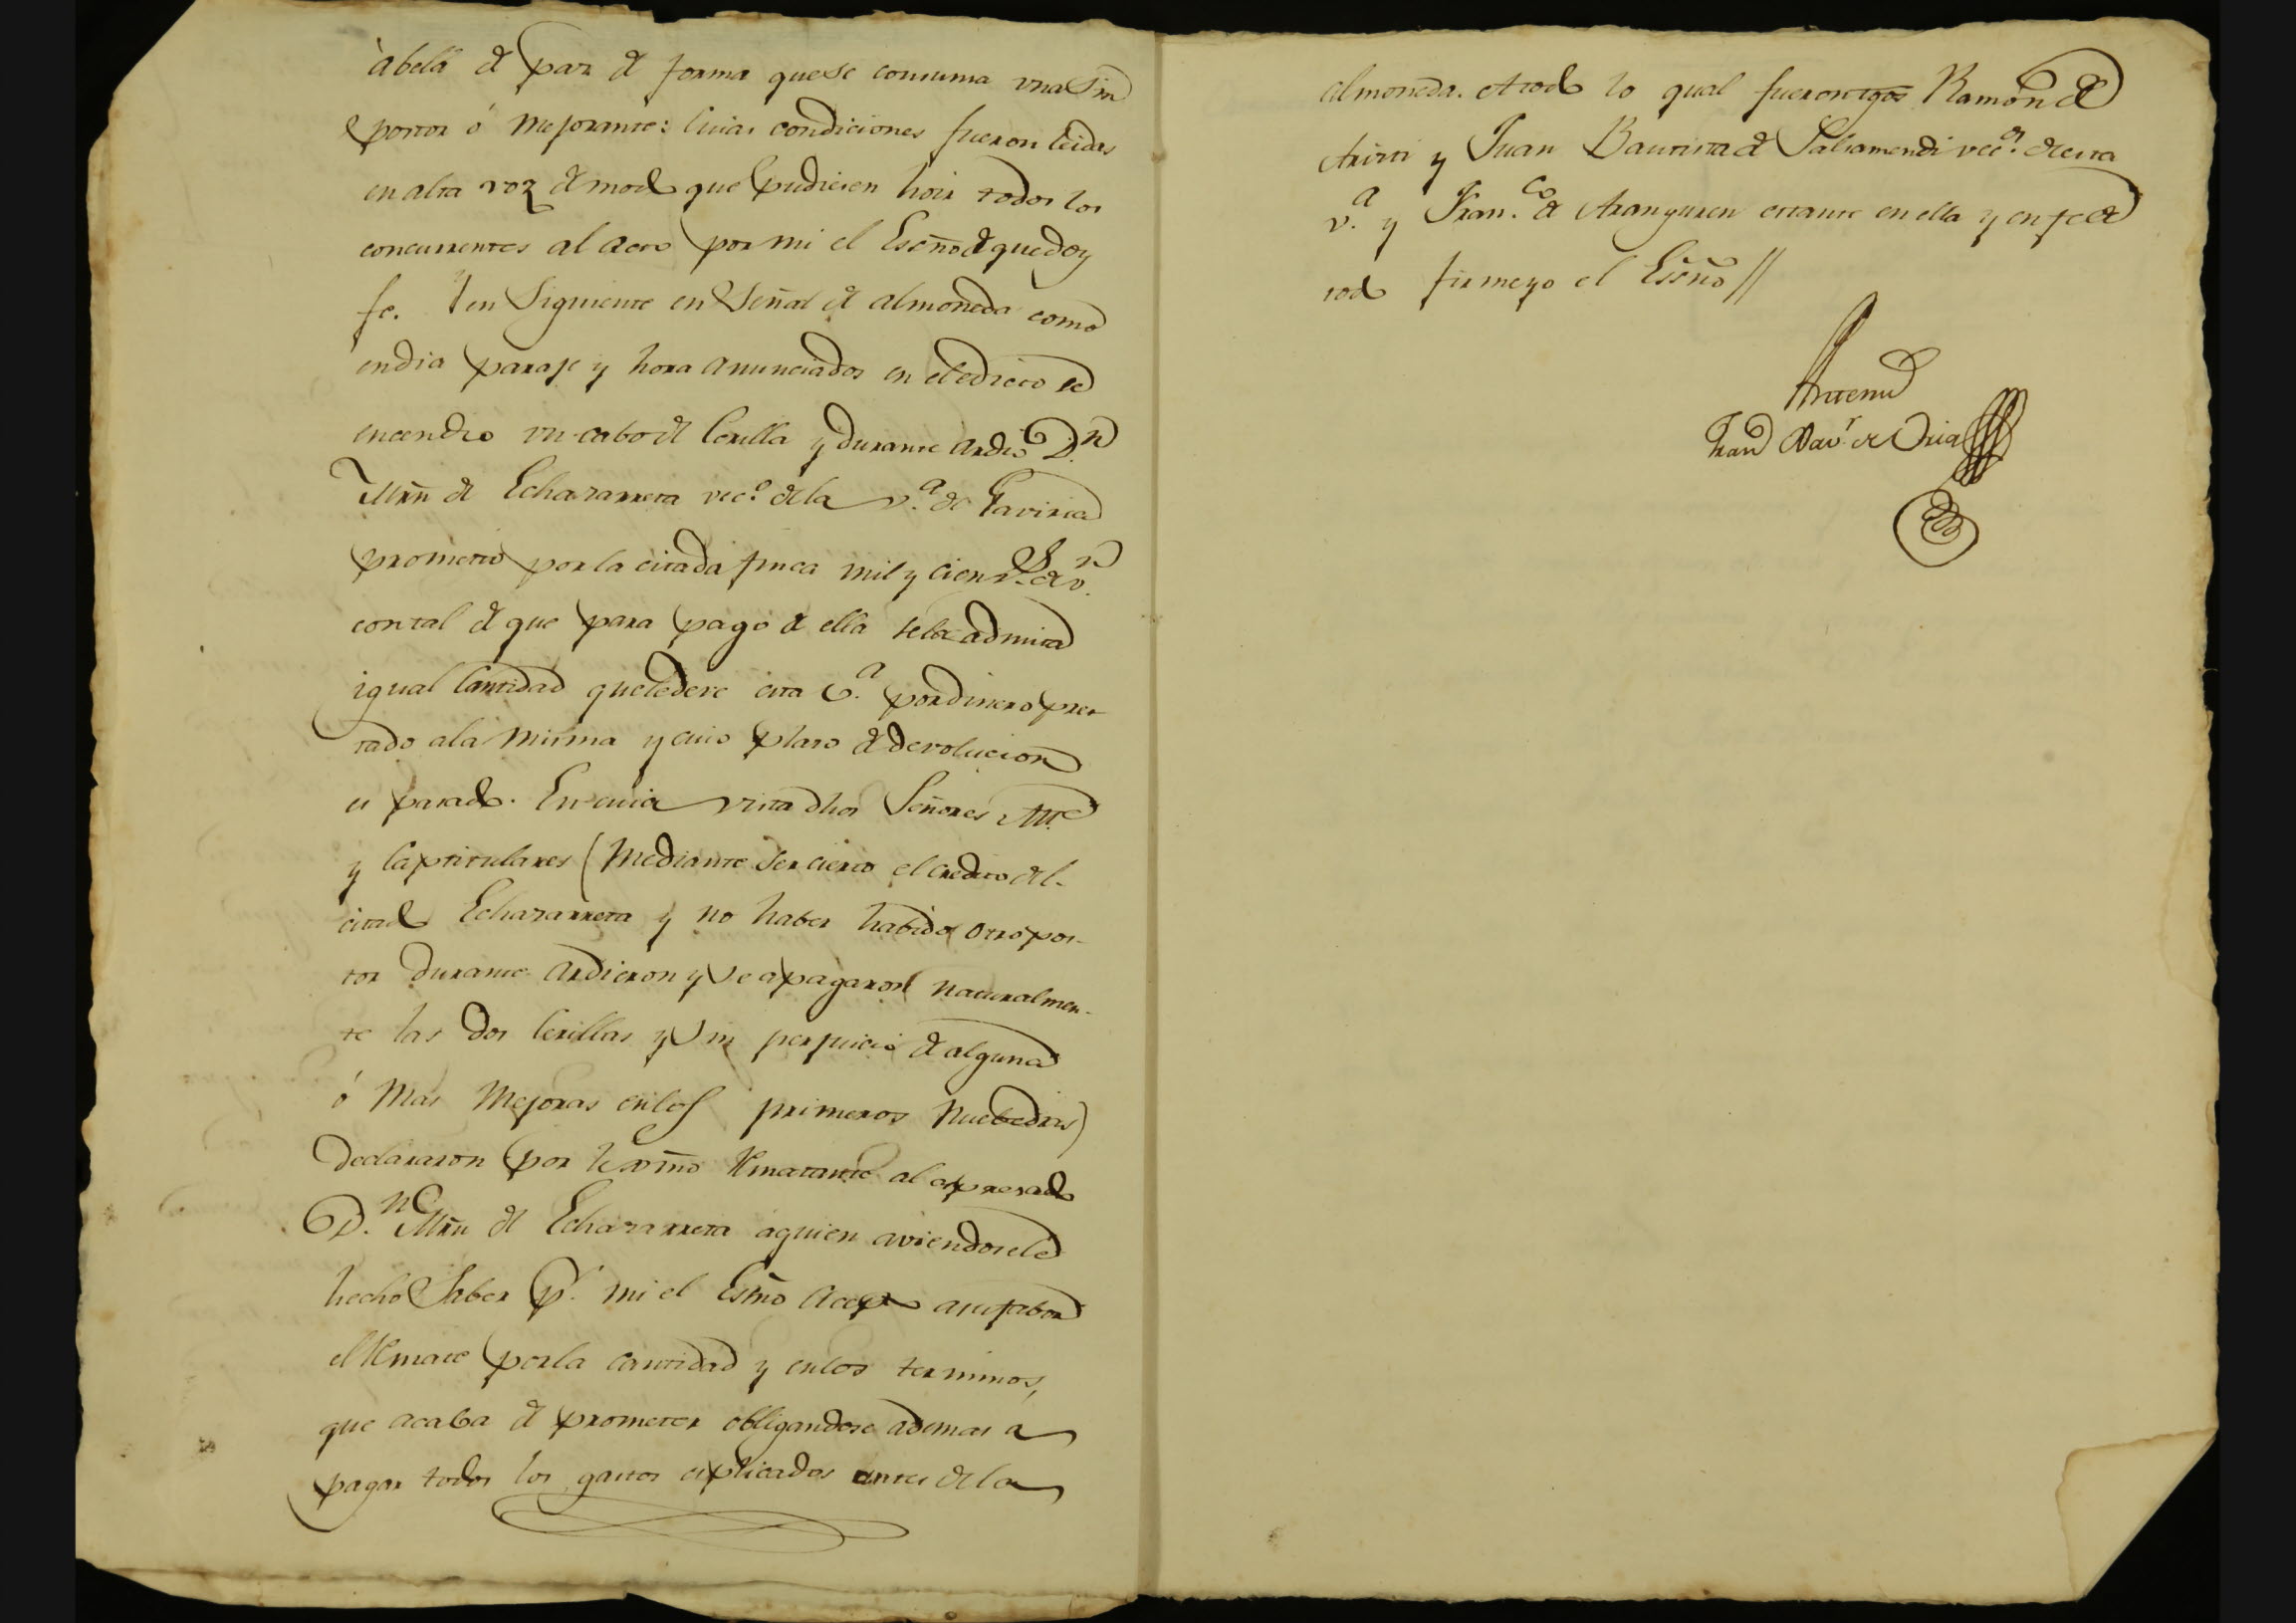 àbela de par de forma quese consuma una sin
postor ó Mejorante: Cuias condiciones fueron leidas
en alta voz de modo que pudiesen hoir todos los
concurrentes al acto por mi el Escño de que doy
fe. Y en Siguiente en Señal de almoneda como
en dia paraje y hora anunciados en el edicto se
encendio un cabo de Cerilla y durante ardio D.n
Mrn de Echazarreta vec.o de la v.a de Gaviria
prometio por la citada finca mil y cien r.s de v.n
con tal de que para pago de ella se la admita
igual Cantidad que le deve esta v.a por dinero pres
tado a la misma y cuio plazo de devolucion
es pasado. En cuia vista dhos Señores Alc.e
y Capitulares (Mediante ser cierto el credito del
citado Echazarreta y no haber habido otro pos-
tor durante ardieron y se apagaron naturalmen-
te las dos Cerillas y sin perjuicio de alguna
ó Mas Mejoras en los primeros Nuebe dias)
declararon por Rematante al expresado
D.n Mrn de Echazarreta aquien aviendosele
hecho Saber p.r mi el Esno acepto asufabor
el Remate por la cantidad y en los terminos,
que acaba de prometer obligandose ademas a
pagar todos los gastos explicados antes de la
almoneda. A todo lo qual fueron tgos Ramon de
Aristi y Juan Bautista de Salsamendi vec.s de esta
v.a y Fran.co de Aranguren estante en ella y en fe de
todo firme yo el Escño //
Antemi
Fran.co Xav.r de Oria